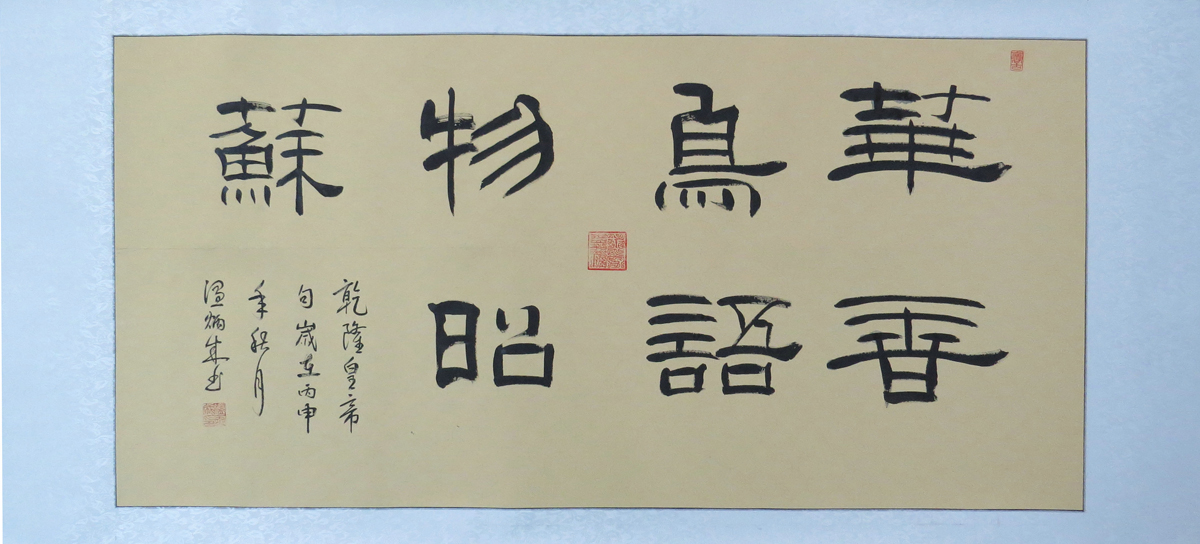 華香
鳥語
物昭
蘇
乾隆皇帝
句歲在丙申
年秋月
溫炳成书